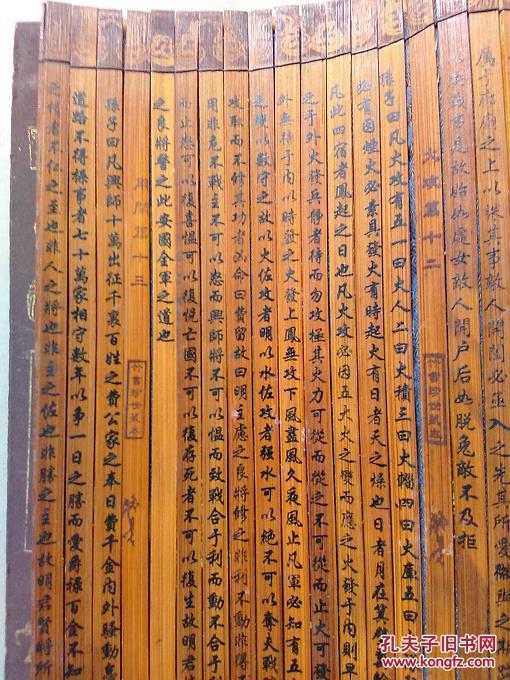 属于廊廟之上以誅其事敵人開闔必亟入之先其所愛
以决戰事是故始如處女敵人開户后如脱兔敵不及拒
火攻篇十二
孫子曰凡火攻有五一曰火人二曰火積三曰火輜四曰火庫五曰
必有因煙火必素具發火有時起火有日者天之燥也日者月在箕
凡此四宿者鳳起之日也凡火攻必因五火之變而應之火發于内則早
之于外火發兵静者待而勿攻極其火力可從而從之不可從而止火可發
外無待于内以時發之火發上鳳無攻下風晝風久夜風止凡軍必知有五
之變以數守之故以火佐攻者明以水佐攻者强水可以絶不可以奪夫戰
攻取而不修其功者凶命曰費留故曰明主慮之良將修之非利不動非得不
用非危不戰主不可以怒而興師將不可以愠而致戰合于利而動不合于利
而止怒可以復喜愠可以復悦亡國不可以復存死者不可以復生故明君慎
之良將警之此安國全軍之道也
用間篇十三
孫子曰凡興師十萬出征千裏百姓之費公家之奉日費千金内外騷動怠
道路不得操事者七十萬家相守數年以争一日之勝而愛爵禄百金不知
之情者不仁之至也非人之將也非主之佐也非勝之主也故明君賢將所
孔夫子旧书网
www.kongfz.com